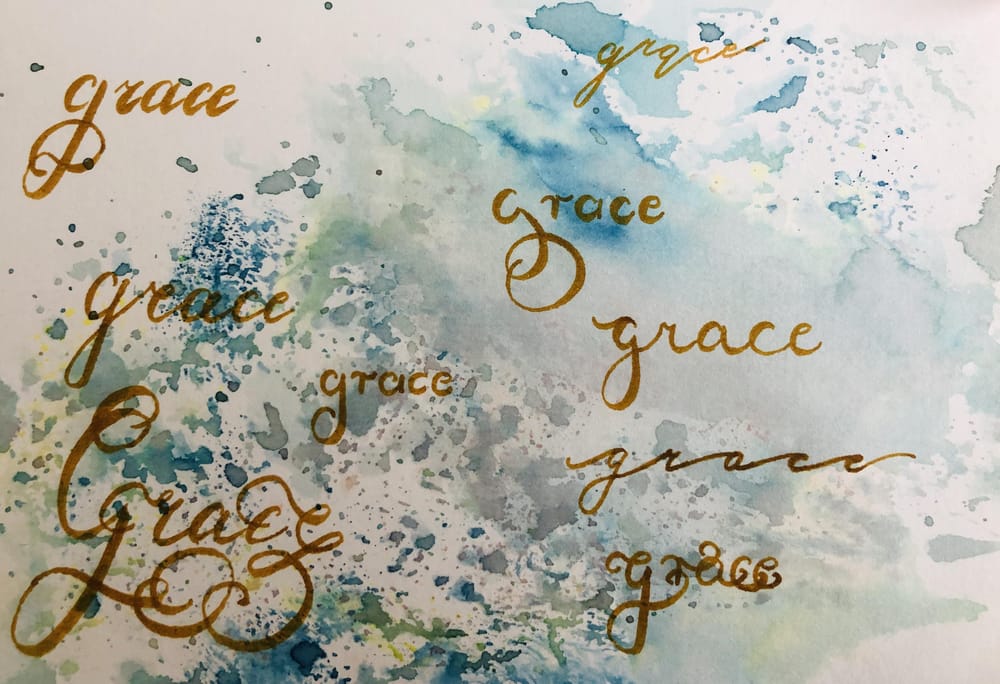 grace
grace
grace
grace
grace
grace
Grace
grace
grace